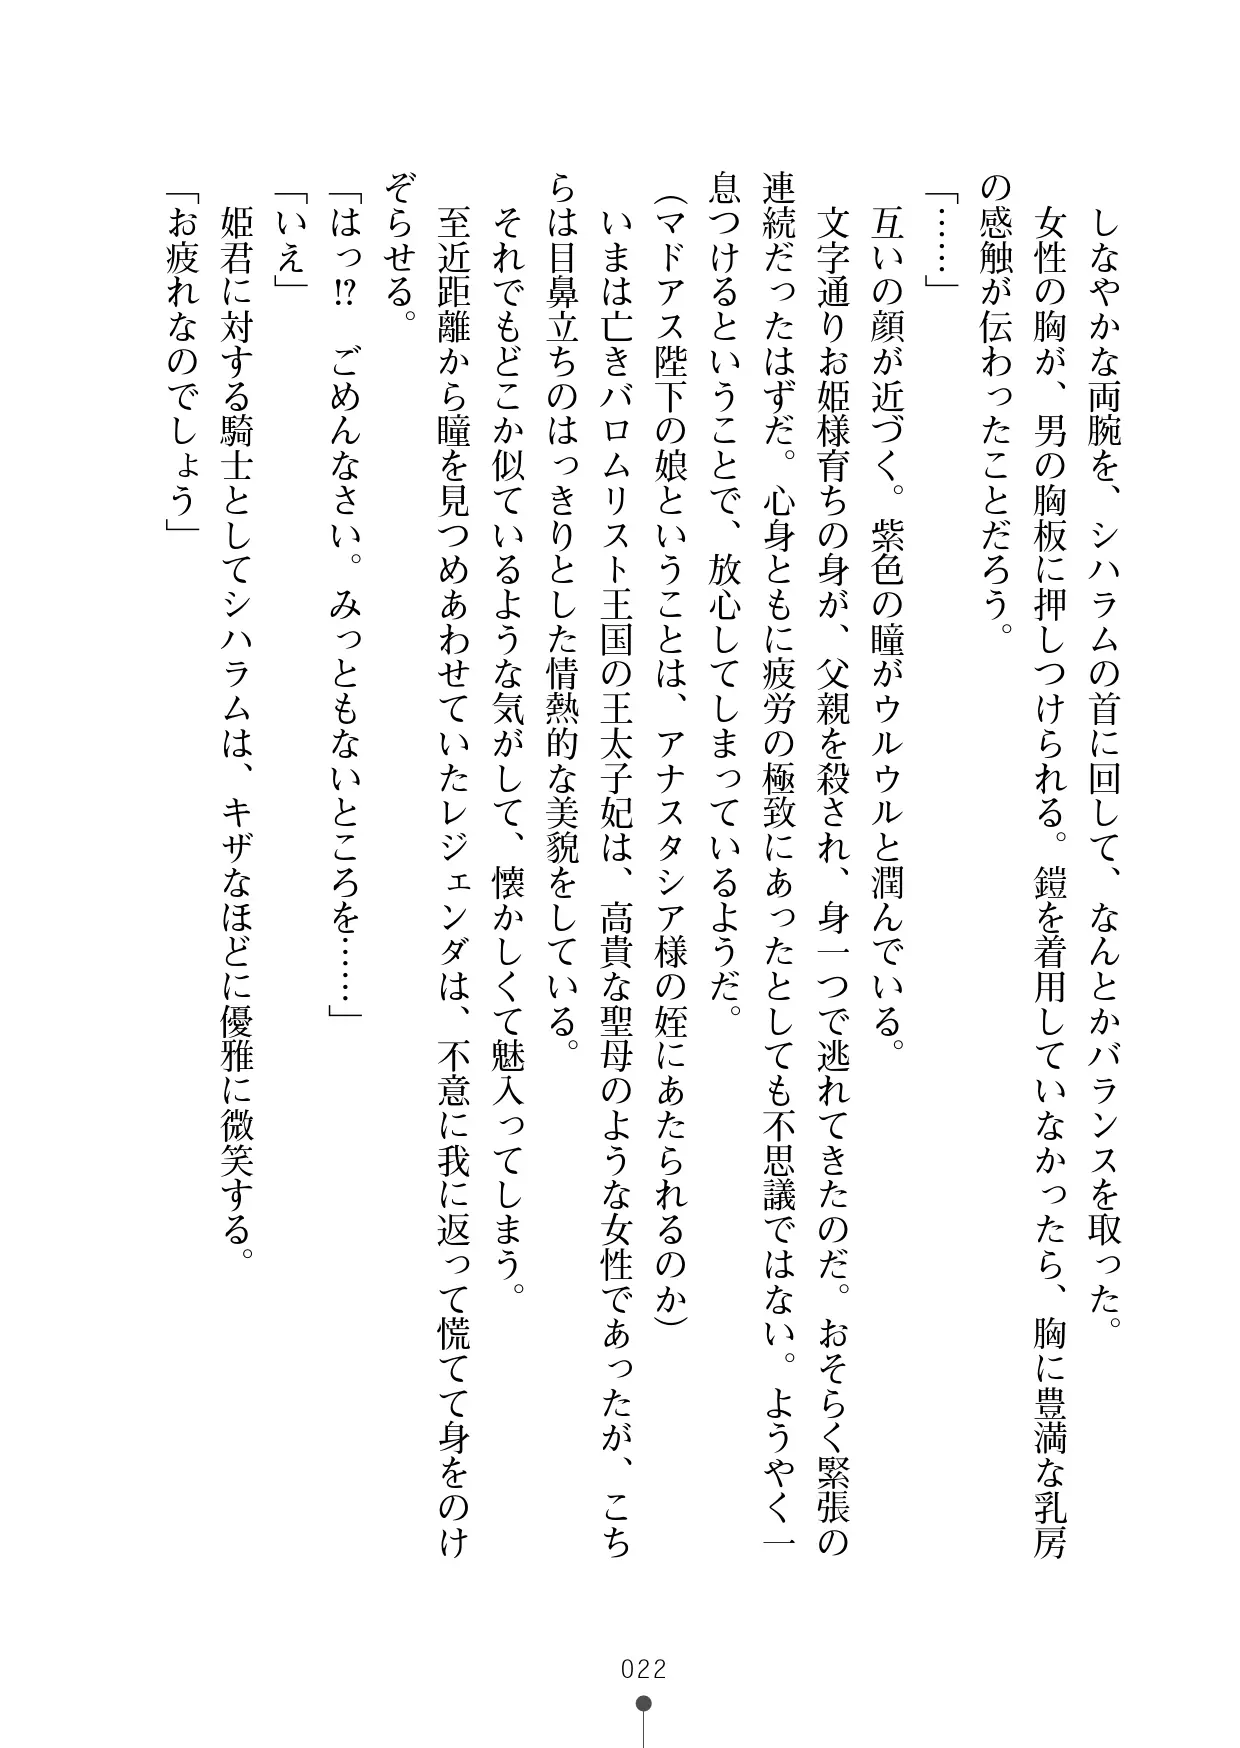 しなやかな両腕を、シハラムの首に回して、なんとかバランスを取った。
女性の胸が、男の胸板に押しつけられる。鎧を着用していなかったら、胸に豊満な乳房
の感触が伝わったことだろう。
「……」
互いの顔が近づく。紫色の瞳がウルウルと潤んでいる。
文字通りお姫様育ちの身が、父親を殺され、身一つで逃れてきたのだ。おそらく緊張の
連続だったはずだ。心身ともに疲労の極致にあったとしても不思議ではない。ようやく一
息つけるということで、放心してしまっているようだ。
（マドアス陛下の娘ということは、アナスタシア様の姪にあたられるのか）
いまは亡きバロムリスト王国の王太子妃は、高貴な聖母のような女性であったが、こち
らは目鼻立ちのはっきりとした情熱的な美貌をしている。
それでもどこか似ているような気がして、懐かしくて魅入ってしまう。
至近距離から瞳を見つめあわせていたレジェンダは、不意に我に返って慌てて身をのけ
ぞらせる。
「はっ!?　ごめんなさい。みっともないところを……」
「いえ」
姫君に対する騎士としてシハラムは、キザなほどに優雅に微笑する。
「お疲れなのでしょう」
022